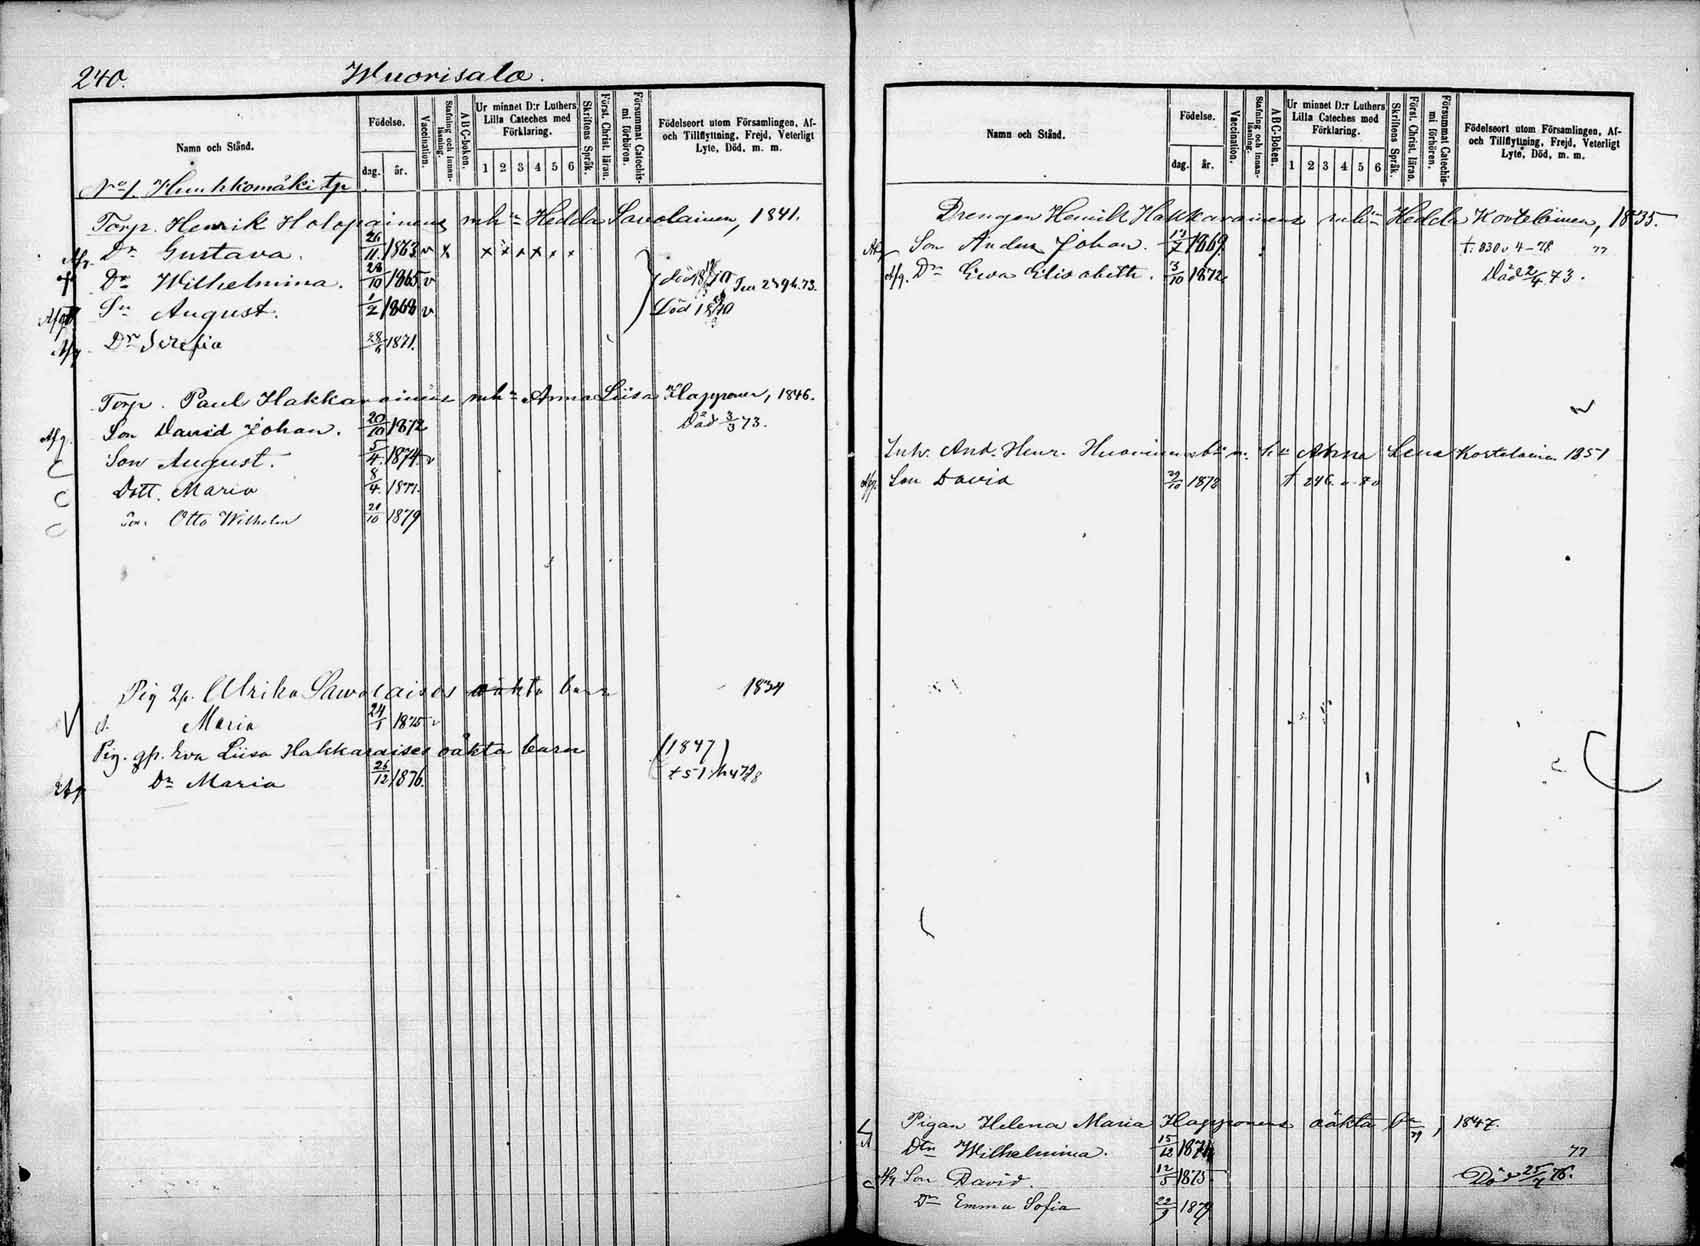 240.
Wuorisalo.
Namn och Stånd.
Födelse.
dag.
år.
Vaccination.
Stafning och innan-läsning.
A B C-Boken.
Ur minnet D:r Luthers
Lilla Cateches med
Förklaring.
1 2 3 4 5 6
Skriftens Språk.
Först. Christ. läran.
Försummat Catechis-mi förhören.
Födelseort utom Församlingen, Af-
och Tillflyttning, Frejd, Veterligt
Lyte, Död, m. m.
No 1. tp
Torp. Henrik Holopainens mh:n Hedda Savolainen, 1841.
Afg. Dr Gustava. 26/11 1863 v x x x x x x x
† Dr Wilhelmina. 28/10 1865 v
Sn August. 1/2 1868 v Död
Afg Dr Serefia 1871.
Torp. Paul Hakkarainens mh:n Anna Liisa Happonen, 1846.
Afg. Son David Johan. 20/10 1872 Död 3/3 73.
Son August. 5/4 1874 v
Dott. Maria 8/4 1877.
Son. Otto Wilhelm 21/10 1879
Pig Ulrika oäkta barn 1834
Maria 24/1 1875 v
Pig. gp. Eva Liisa Hakkaraises oäkta barn (1847)
Afg Dr Maria 26/12 1876.
Namn och Stånd.
Födelse.
dag.
år.
Vaccination.
Stafning och innan-läsning.
A B C-Boken.
Ur minnet D:r Luthers
Lilla Cateches med
Förklaring.
1 2 3 4 5 6
Skriftens Språk.
Först. Christ. läran.
Försummat Catechis-mi förhören.
Födelseort utom Församlingen, Af-
och Tillflyttning, Frejd, Veterligt
Lyte, Död, m. m.
Drengen Henrik Hakkarainens mh:n Hedda Kortelainen, 1835.
Afg Son Anders Johan. 1869.
Afg. Dr Ewa Elisabeth. 13/10 1872. Död 2/4 73.
Inh. And. Henr. Anna Lena Kortelainen 1851
Afg. Son David 29/10 1878 † 246.
Pigan Helena Maria Happonens oäkta bn, 1847.
Dtr Wilhelmina. 15/12
Afg Son David. 12/5 1875. Död 76.
Dr Emma Sofia 22/9 1879